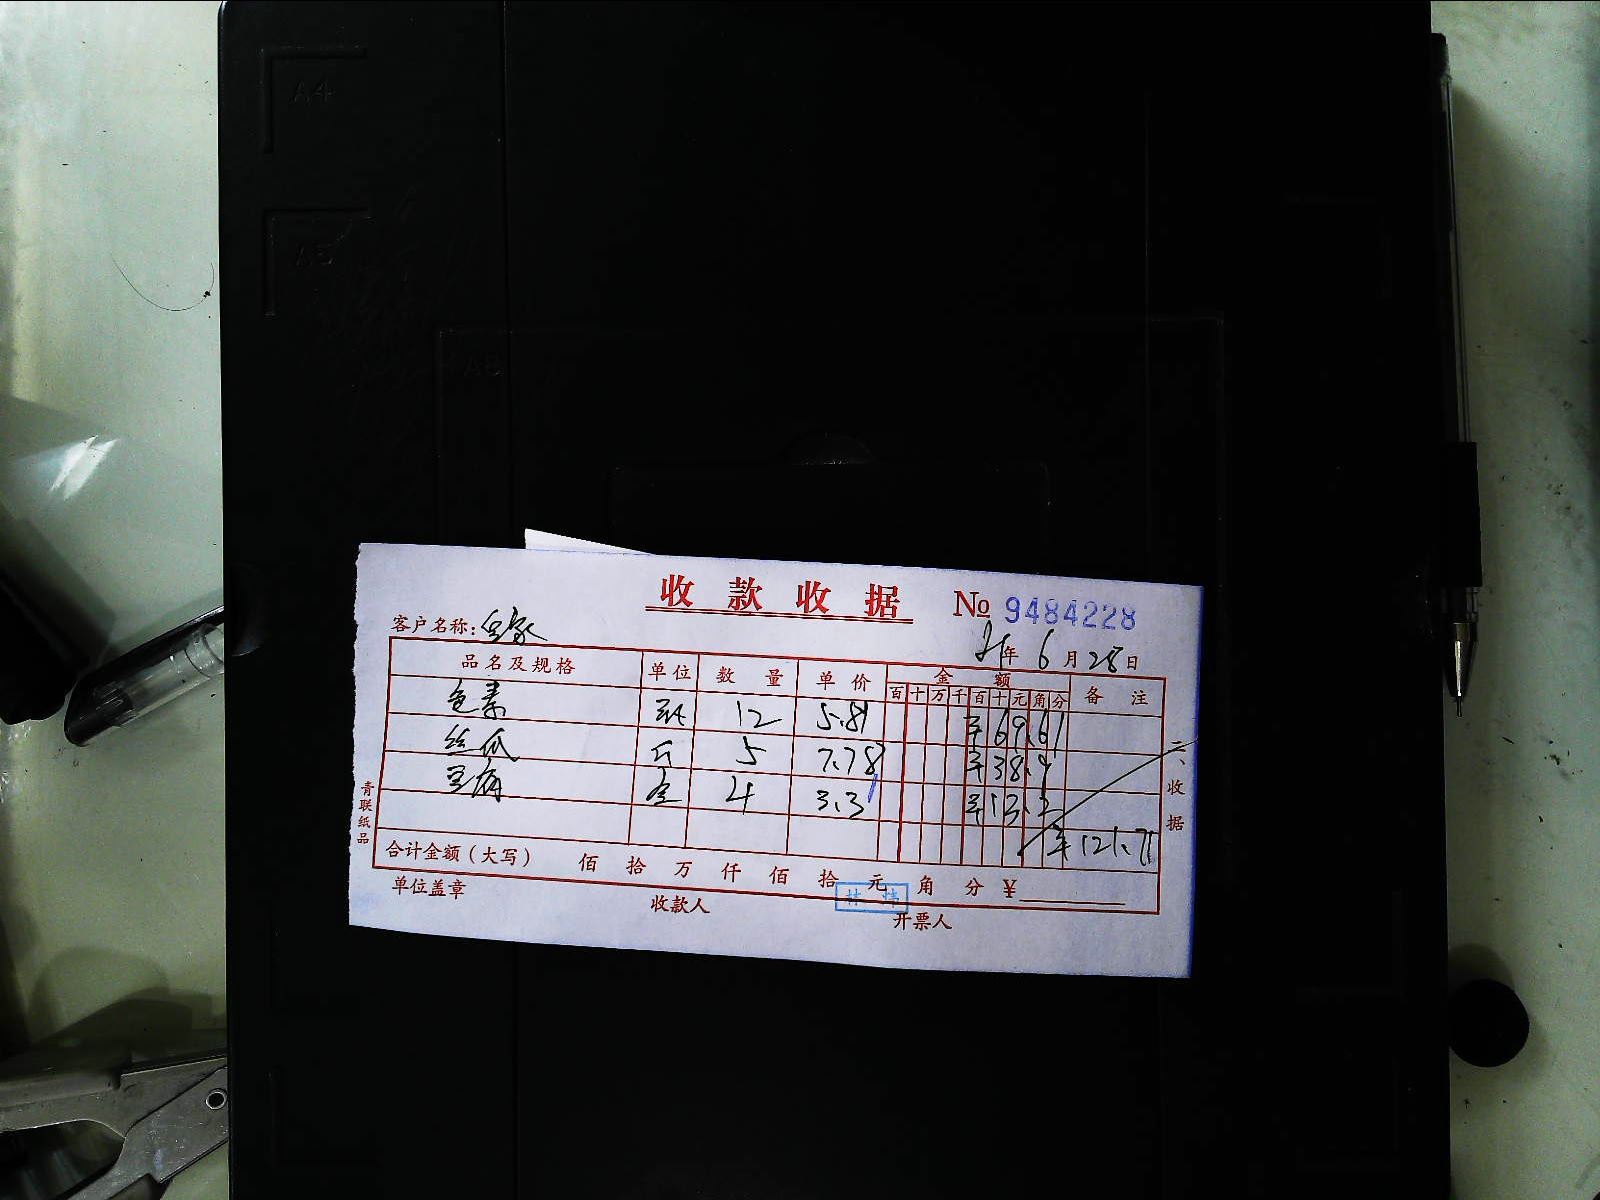 A4
A5
A6
收款收据 № 9484228
客户名称：
21年 6月 28日
品名及规格 单位 数量 单价 金额 备注
百 十 万 千 百 十 元 角 分
色素 12 5.81 ¥69.61
丝瓜 斤 5 7.78 ¥38.9
豆腐 盒 4 3.3 ¥13.2
¥121.71
合计金额（大写） 佰 拾 万 仟 佰 拾 元 角 分 ¥
单位盖章 收款人 开票人
青联纸品
二、收据